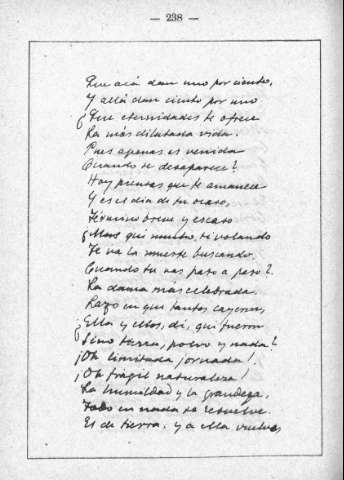 — 238 —
Que acá dan uno por ciento,
Y allá dan ciento por uno
¿Que eternidades te ofrece
La más dilatada vida.
Pues apenas es venida
Cuando se desaparece?
Hoy piensas que te amanece
Y es el día de tu ocaso,
Término breve y escaso
¿Mas qué mucho, si volando
Te va la muerte buscando,
Cuando tu vas paso a paso?
La dama más celebrada.
Lazo en que tantos cayeron,
¿Ella y ellos, di, qué fueron
Sino tierra, polvo y nada?
¡Oh limitada jornada!
¡Oh frágil naturaleza!
La humildad y la grandeza,
Todo en nada se resuelve.
Es de tierra, y a ella vuelve,